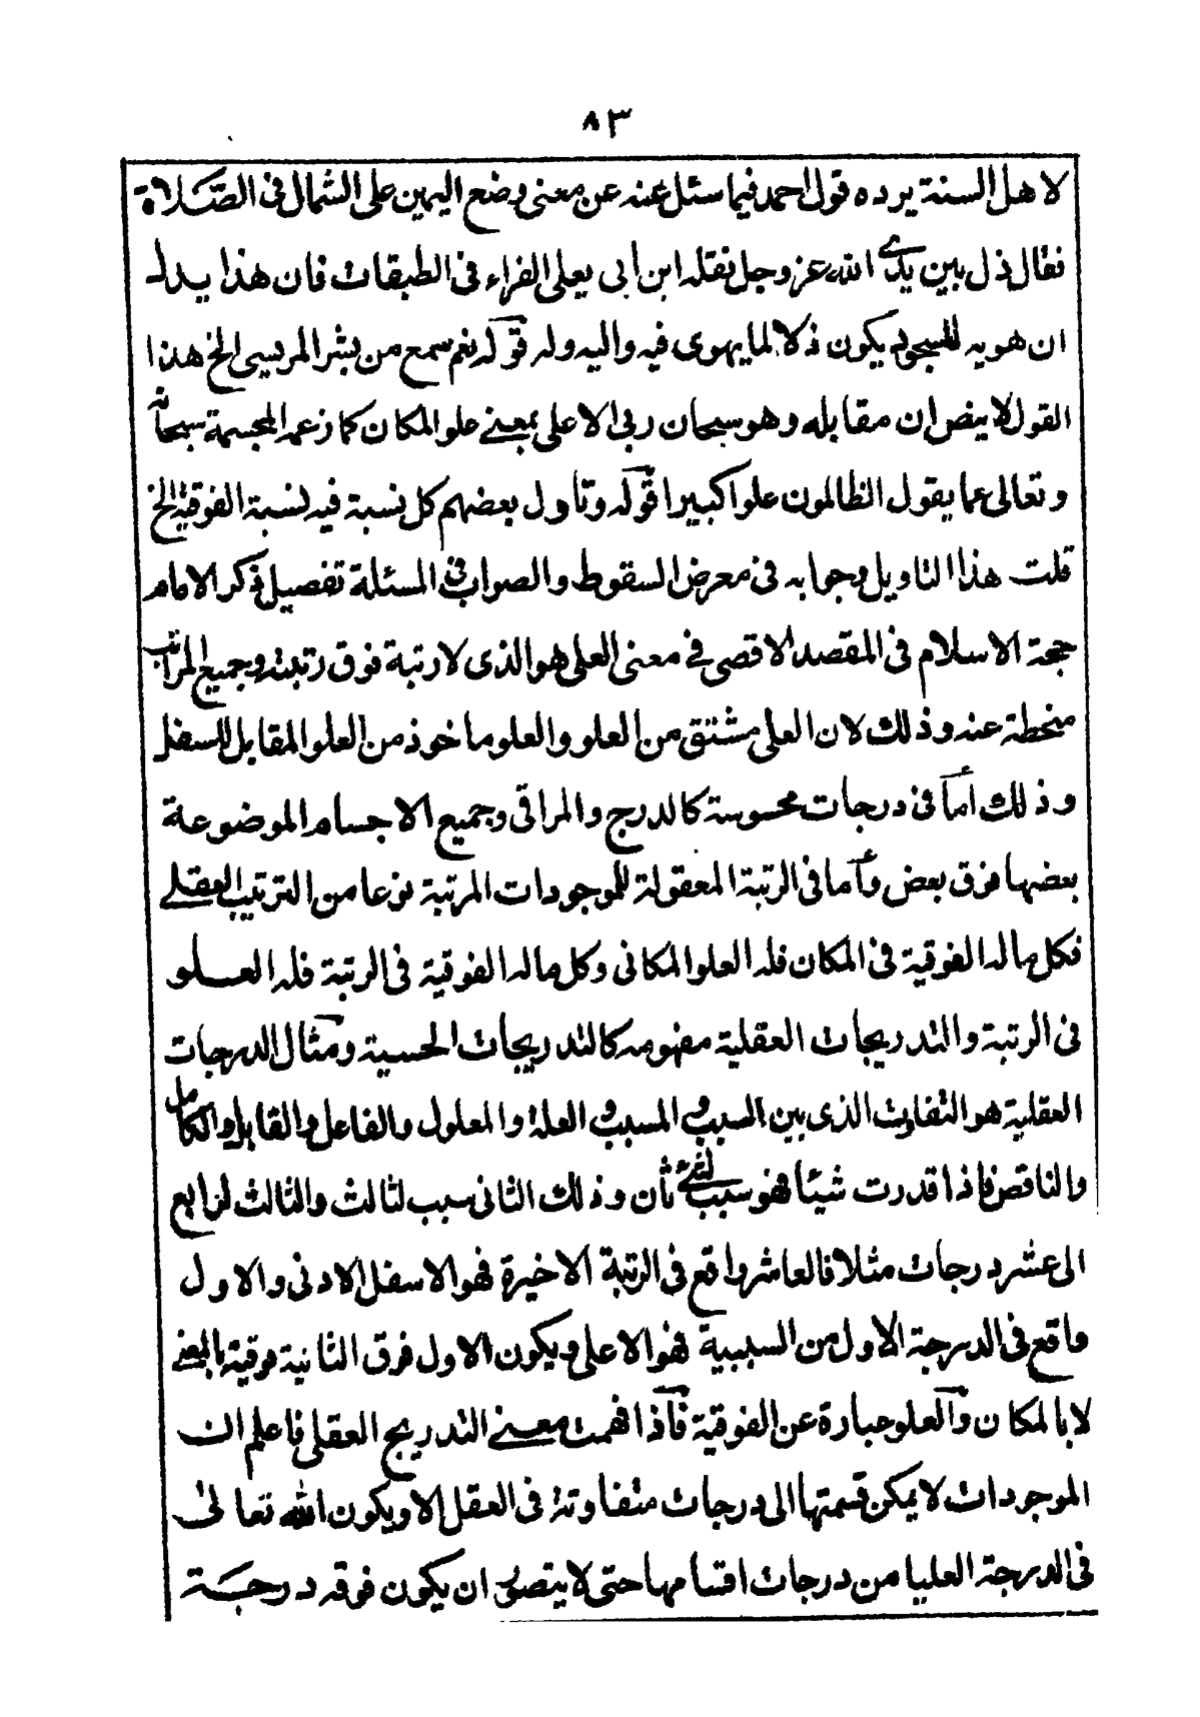 ٨٣
لاهل السنة يرده قول احمد فيما سئل عنه عن معنى وضع اليمين على الشمال في الصلاة
فقال ذل بين يدي الله عز وجل نقله ابن ابى يعلى الفراء في الطبقات فان هذا يدل
ان هويه للسجود يكون ذلا لما يهوى فيه واليه وله قوله نعم سمع من بشر المريسى الخ هذا
القول لا ينقص ان مقابله وهو سبحان ربى الاعلى بمعنى علو المكان كما زعمه المجسمة سبحانه
وتعالى عما يقول الظالمون علوا كبيرا قوله وتأول بعضهم كل نسبة فيه لنسبة الفوقية الخ
قلت هذا التاويل وجوابه في معرض السقوط والصواب في المسئلة تفصيل ذكر الامام
حجة الاسلام في المقصد الاقصى في معنى العلى هو الذى لا رتبة فوق رتبته وجميع المراتب
منحطة عنه وذلك لان العلى مشتق من العلو والعلو ماخوذ من العلو المقابل للسفل
وذلك أما في درجات محسوسة كالدرج والمراقى وجميع الاجسام الموضوعة
بعضها فوق بعض وأما في الرتبة المعقولة للموجودات المرتبة نوعا من الترتيب العقلى
فكل ماله الفوقية في المكان فله العلو المكانى وكل ماله الفوقية في الرتبة فله العلو
في الرتبة والتدريجات العقلية مفهومه كالتدريجات الحسية ومثال الدرجات
العقلية هو التفاوت الذى بين السبب والمسبب والعلة والمعلول والفاعل والقابل والكامل
والناقص فاذا قدرت شيئا فهو سبب لشئ ثان وذلك الثانى سبب لثالث والثالث لرابع
الى عشر درجات مثلا فالعاشر واقع في الرتبة الاخيرة فهو الاسفل الادنى والاول
واقع في الدرجة الاول من السببية فهو الاعلى ويكون الاول فوق الثانية فوقية بالمعنى
لا بالمكان والعلو عبارة عن الفوقية فاذا فهمت معنى التدريج العقلى فاعلم ان
الموجودات لا يمكن قسمتها الى درجات متفاوتة في العقل الا ويكون الله تعالى
في الدرجة العليا من درجات اقسامها حتى لا يتصور ان يكون فوقه درجة